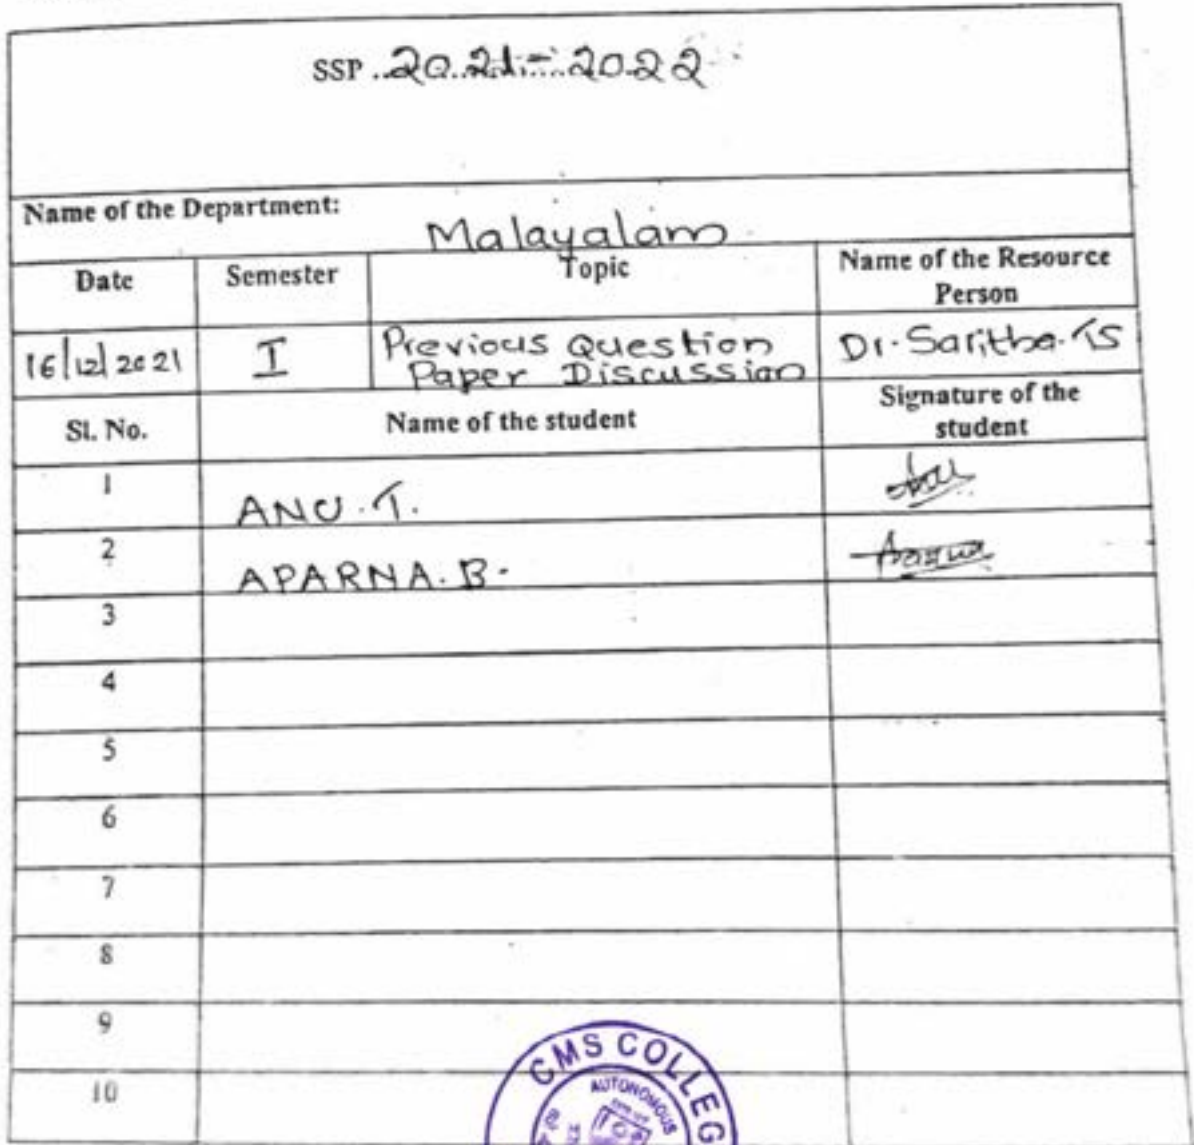 SSP 2021-2022
Name of the Department: Malayalam
Date Semester Topic Name of the Resource Person
16/12/2021 I Previous Question Paper Discussion Dr. Saritha. TS
Sl. No. Name of the student Signature of the student
1 ANU. T.
2 APARNA. B.
3
4
5
6
7
8
9
10
CMS COLLEG
AUTONOMOUS